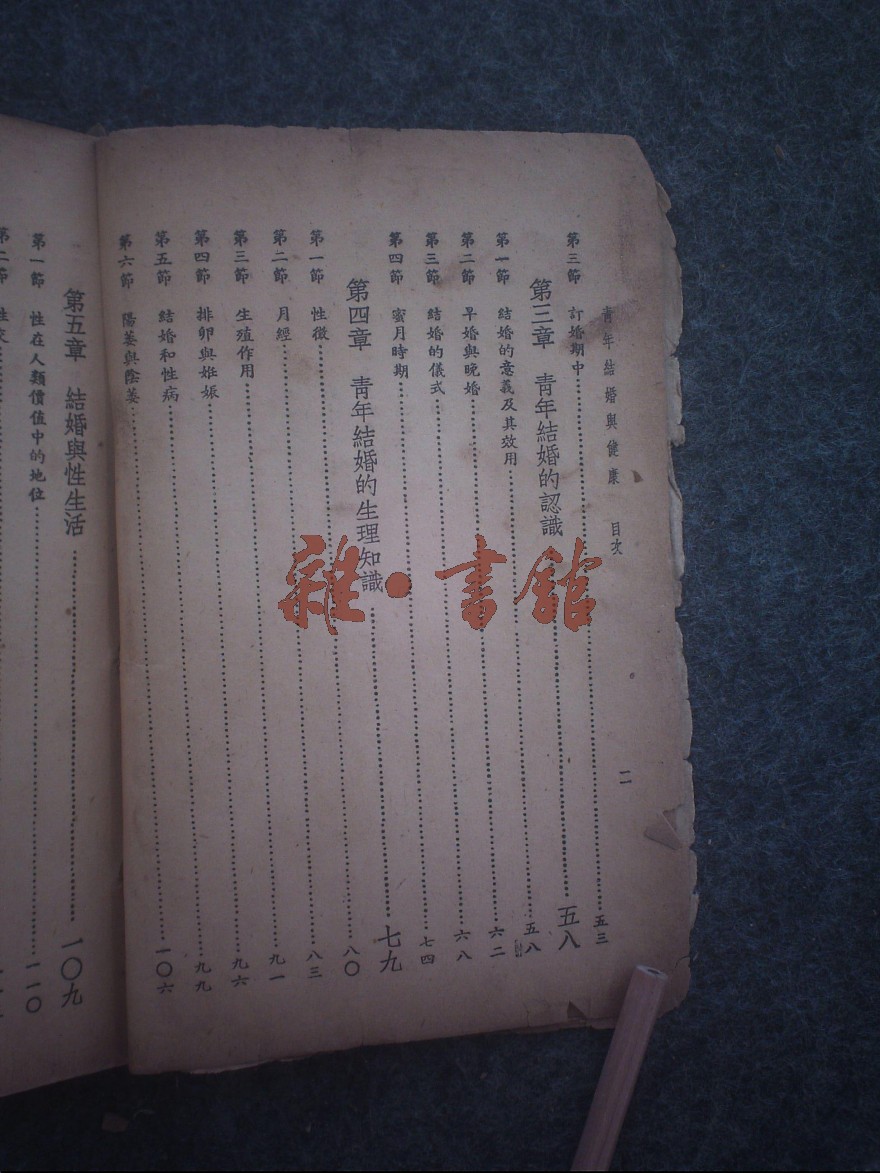 青年結婚與健康 目次 二
第三節 訂婚期中⋯⋯五三
第三章 青年結婚的認識⋯⋯五八
第一節 結婚的意義及其效用⋯⋯五八
第二節 早婚與晚婚⋯⋯六二
第三節 結婚的儀式⋯⋯六八
第四節 蜜月時期⋯⋯七四
第四章 青年結婚的生理知識⋯⋯七九
第一節 性徵⋯⋯八〇
第二節 月經⋯⋯八三
第三節 生殖作用⋯⋯九一
第四節 排卵與姙娠⋯⋯九六
第五節 結婚和性病⋯⋯九九
第六節 陽萎與陰萎⋯⋯一〇六
第五章 結婚與性生活⋯⋯一〇九
第一節 性在人類價值中的地位⋯⋯一一〇
第二節 性交⋯⋯
雜•書館